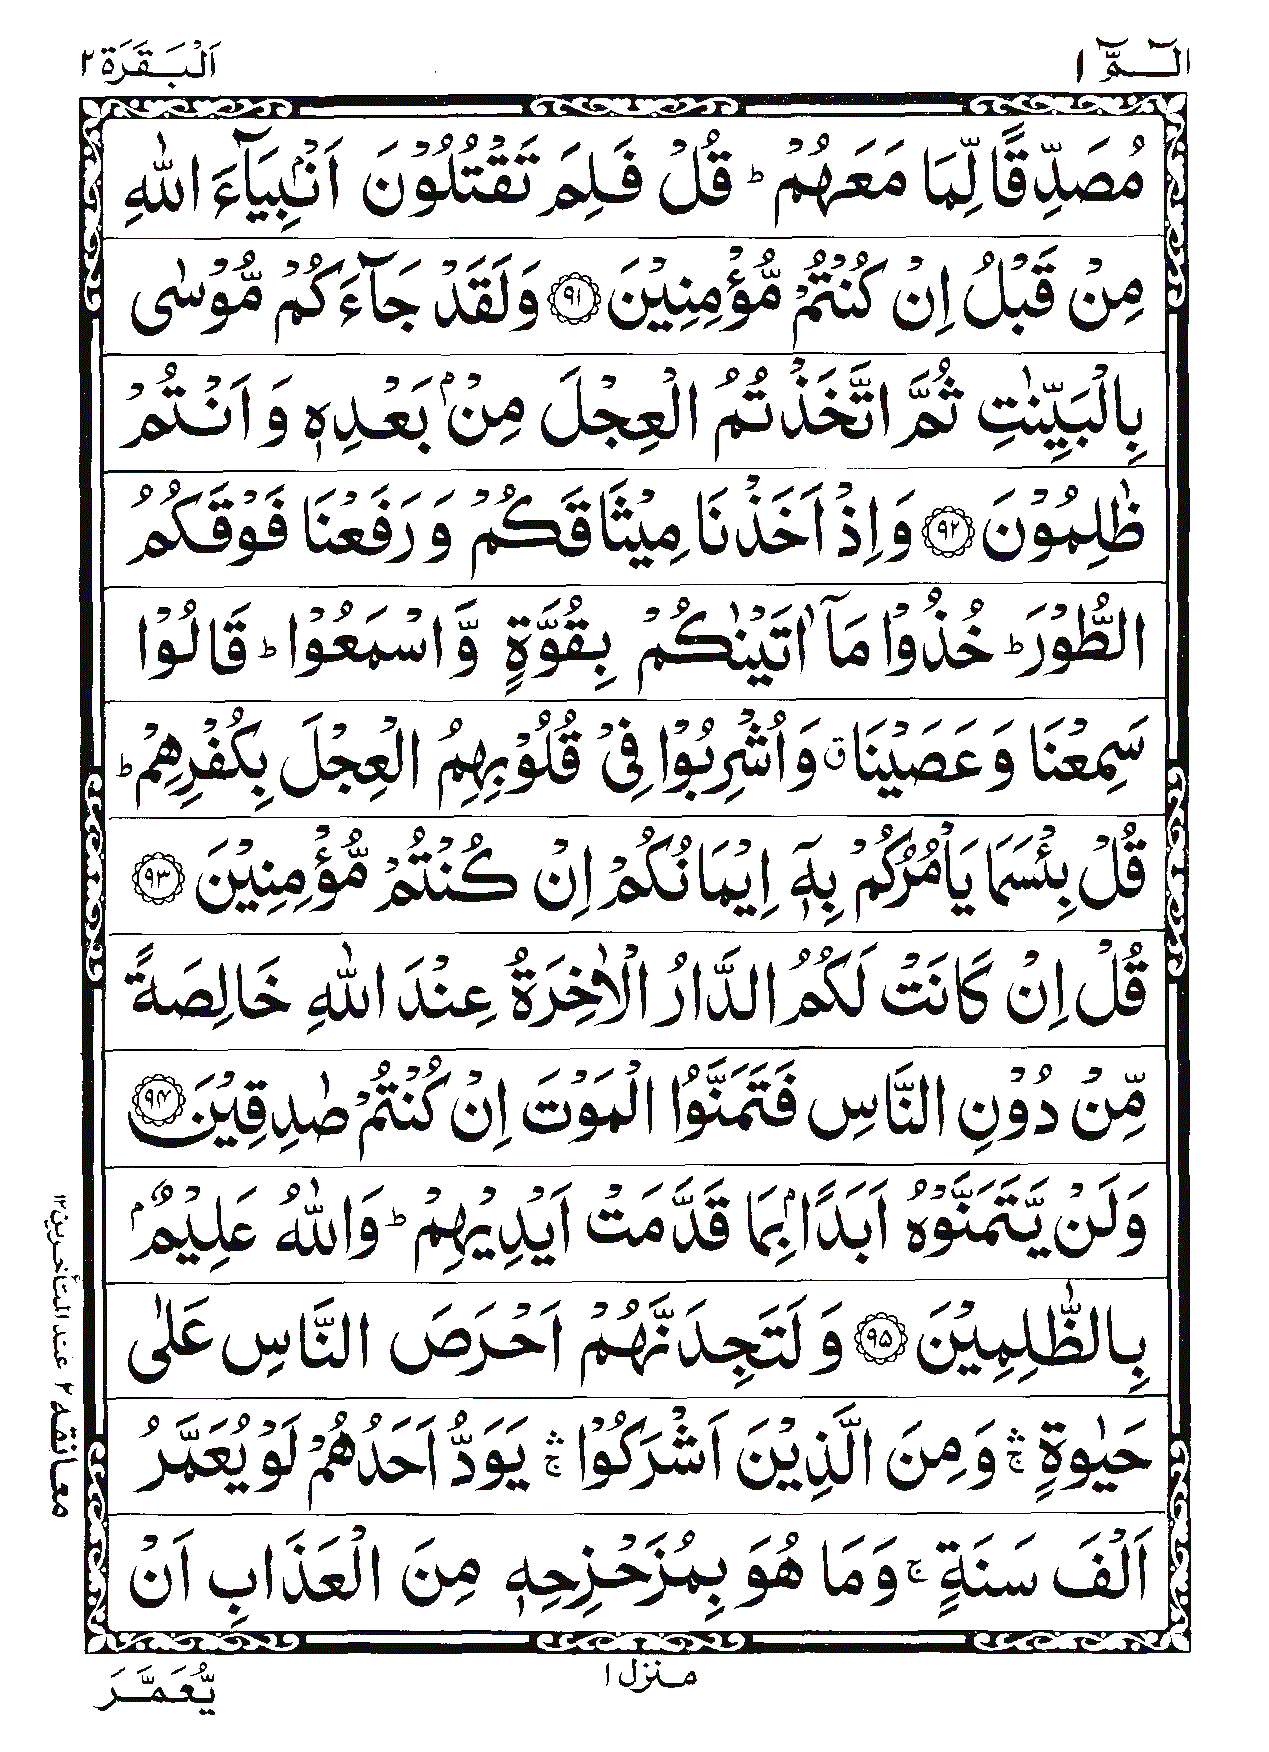 الٓـمّٓ ١
اَلْبَقَرَة ٢
مُصَدِّقًا لِّمَا مَعَهُمْ ؕ قُلْ فَلِمَ تَقْتُلُوْنَ اَنْۢبِيَآءَ اللّٰهِ
مِنْ قَبْلُ اِنْ كُنْتُمْ مُّؤْمِنِيْنَ ﴿۹۱﴾ وَلَقَدْ جَآءَكُمْ مُّوْسٰى
بِالْبَيِّنٰتِ ثُمَّ اتَّخَذْتُمُ الْعِجْلَ مِنْۢ بَعْدِهٖ وَ اَنْتُمْ
ظٰلِمُوْنَ ﴿۹۲﴾ وَاِذْ اَخَذْنَا مِيْثَاقَكُمْ وَ رَفَعْنَا فَوْقَكُمُ
الطُّوْرَ ؕ خُذُوْا مَآ اٰتَيْنٰكُمْ بِقُوَّةٍ وَّ اسْمَعُوْا ؕ قَالُوْا
سَمِعْنَا وَ عَصَيْنَا ۗ وَاُشْرِبُوْا فِيْ قُلُوْبِهِمُ الْعِجْلَ بِكُفْرِهِمْ ؕ
قُلْ بِئْسَمَا يَاْمُرُكُمْ بِهٖٓ اِيْمَانُكُمْ اِنْ كُنْتُمْ مُّؤْمِنِيْنَ ﴿۹۳﴾
قُلْ اِنْ كَانَتْ لَكُمُ الدَّارُ الْاٰخِرَةُ عِنْدَ اللّٰهِ خَالِصَةً
مِّنْ دُوْنِ النَّاسِ فَتَمَنَّوُا الْمَوْتَ اِنْ كُنْتُمْ صٰدِقِيْنَ ﴿۹۴﴾
وَلَنْ يَّتَمَنَّوْهُ اَبَدًۢا بِمَا قَدَّمَتْ اَيْدِيْهِمْ ؕ وَاللّٰهُ عَلِيْمٌۢ
بِالظّٰلِمِيْنَ ﴿۹۵﴾ وَ لَتَجِدَنَّهُمْ اَحْرَصَ النَّاسِ عَلٰى
حَيٰوةٍ ۛۚ وَ مِنَ الَّذِيْنَ اَشْرَكُوْا ۛۚ يَوَدُّ اَحَدُهُمْ لَوْ يُعَمَّرُ
اَلْفَ سَنَةٍ ۚ وَمَا هُوَ بِمُزَحْزِحِهٖ مِنَ الْعَذَابِ اَنْ
معانقه ۲ عند المتأخرين ۱۲
منزل ١
يُّعَمَّرَ